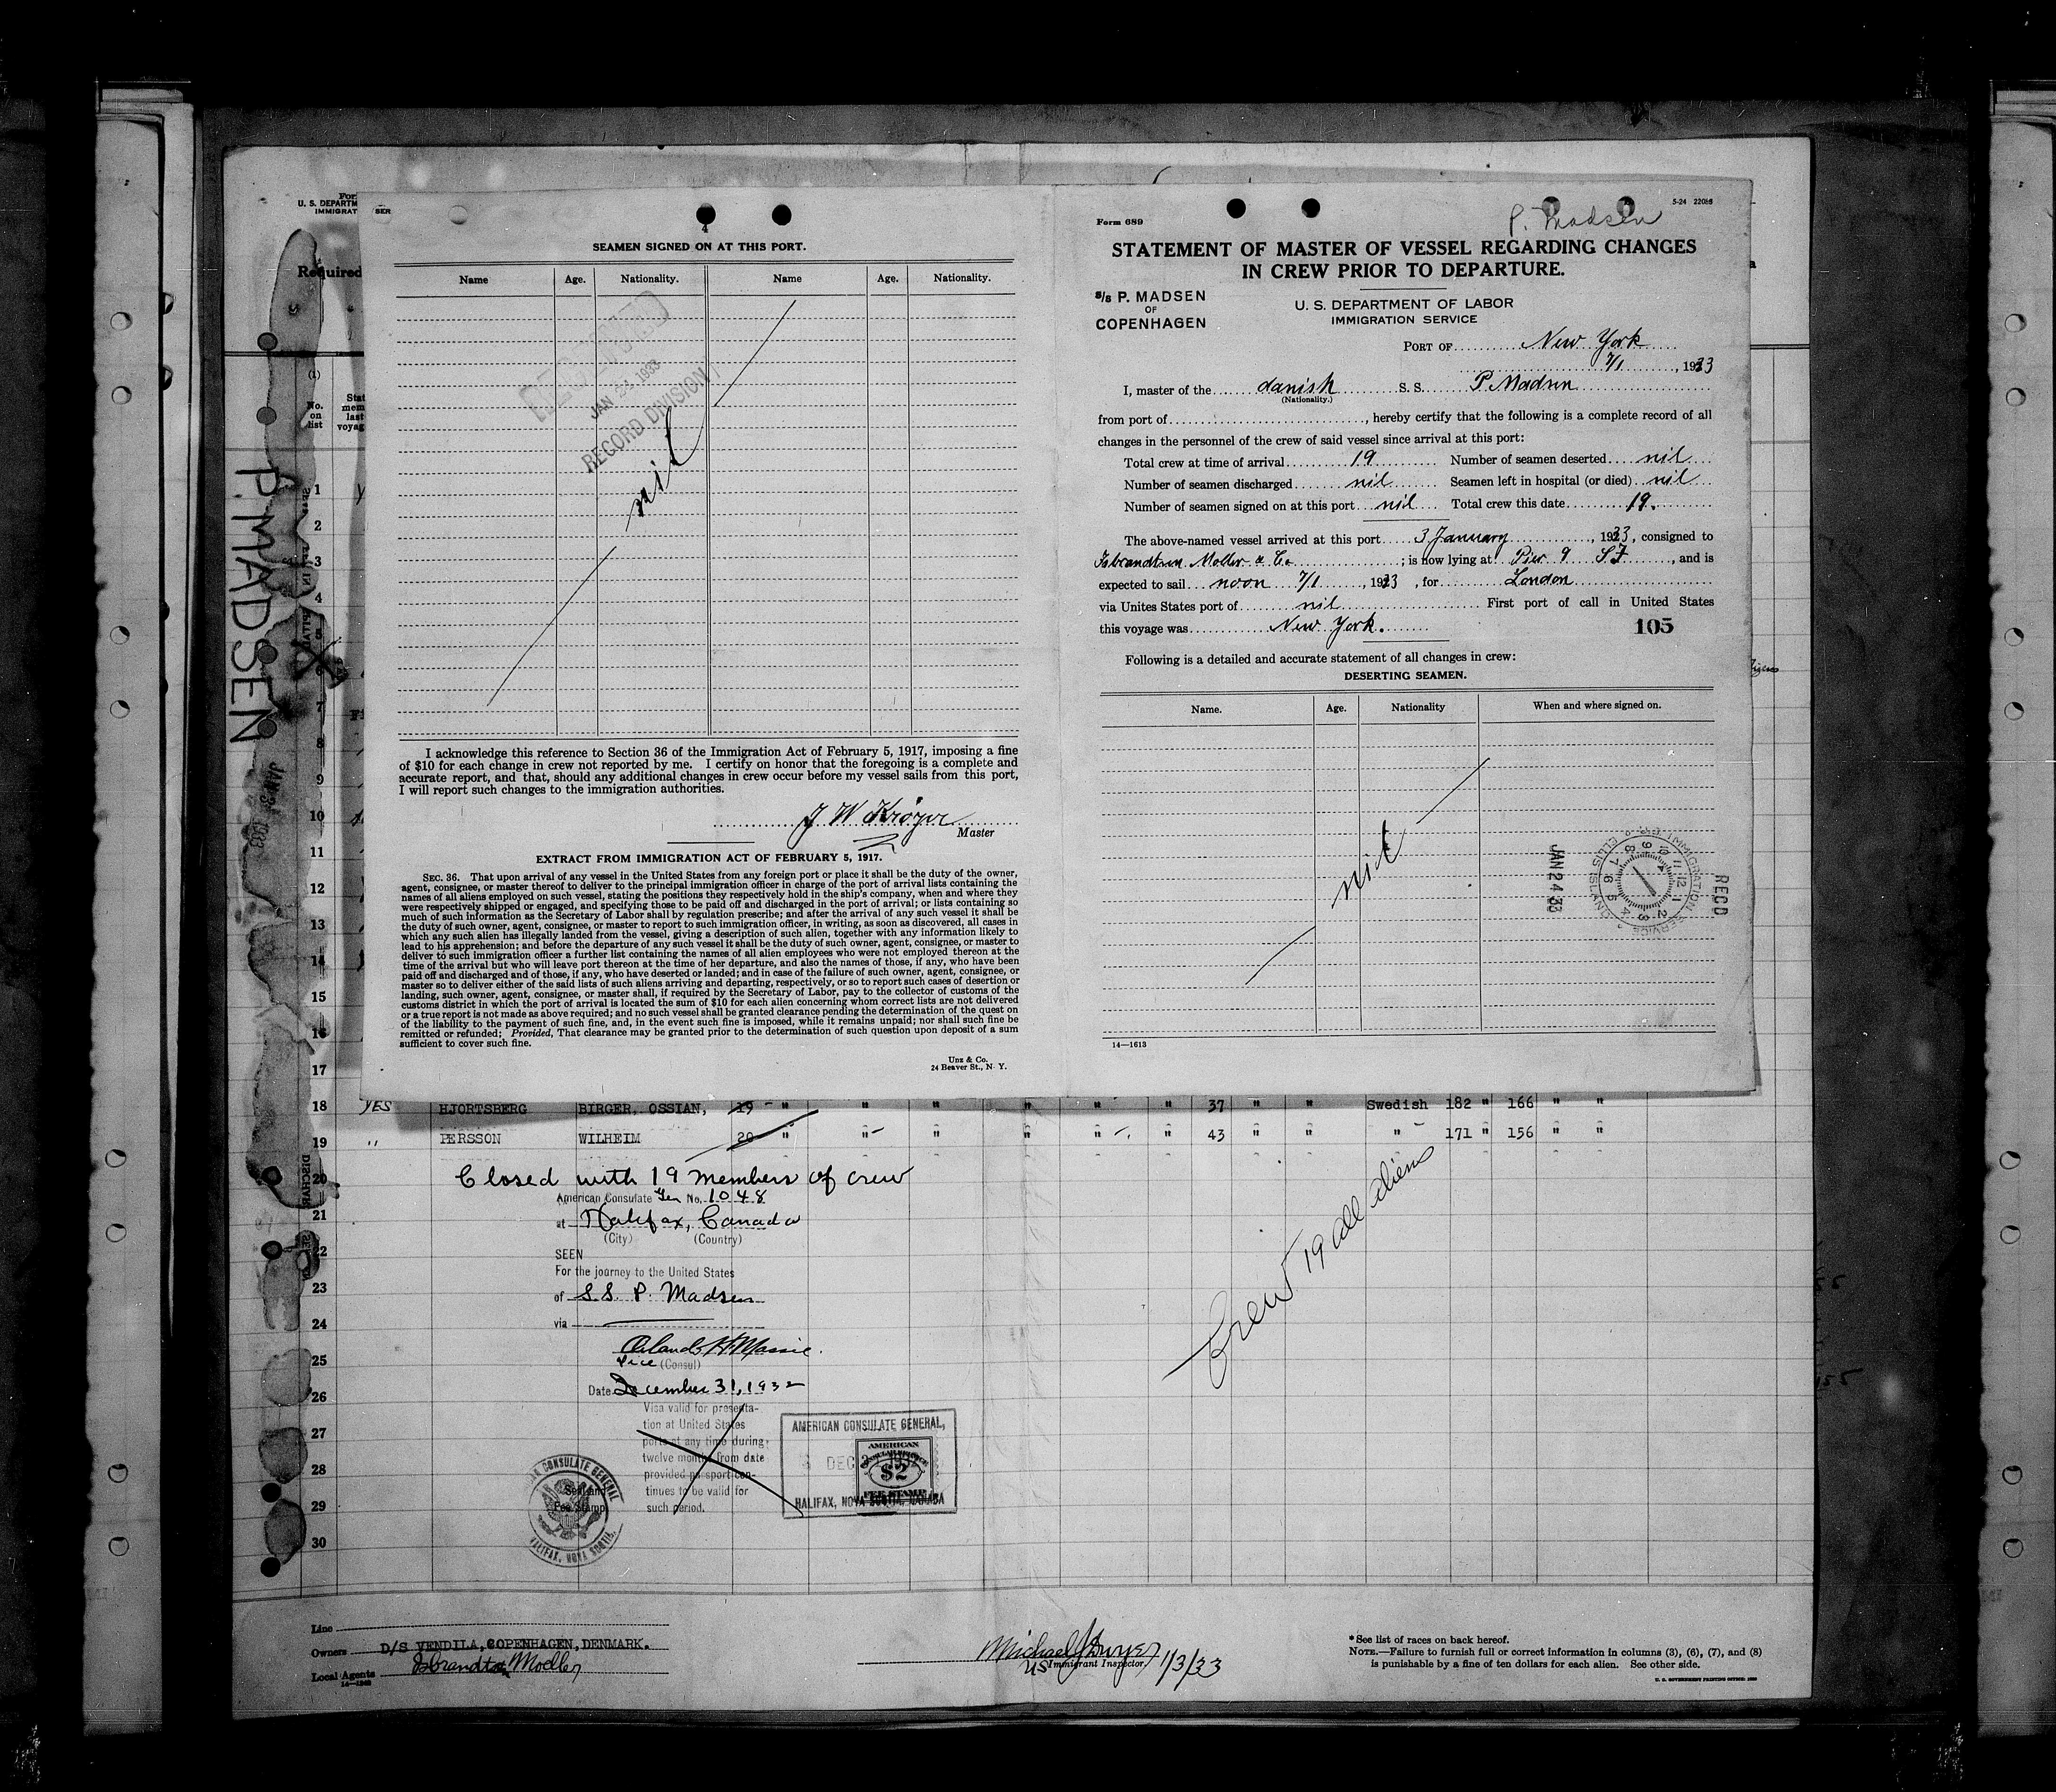 P. MADSEN
For
U. S. DEPARTM
IMMIGRAT
SER
Required
(1)
No. on list
Stat
mem
last
voyag
4
SEAMEN SIGNED ON AT THIS PORT.
Name Age. Nationality. Name Age. Nationality.
JAN 1933
RECORD DIVISION
nil
I acknowledge this reference to Section 36 of the Immigration Act of February 5, 1917, imposing a fine
of $10 for each change in crew not reported by me. I certify on honor that the foregoing is a complete and
accurate report, and that, should any additional changes in crew occur before my vessel sails from this port,
I will report such changes to the immigration authorities.
J W Krøyer
Master
EXTRACT FROM IMMIGRATION ACT OF FEBRUARY 5, 1917.
SEC. 36. That upon arrival of any vessel in the United States from any foreign port or place it shall be the duty of the owner,
agent, consignee, or master thereof to deliver to the principal immigration officer in charge of the port of arrival lists containing the
names of all aliens employed on such vessel, stating the positions they respectively hold in the ship's company, when and where they
were respectively shipped or engaged, and specifying those to be paid off and discharged in the port of arrival; or lists containing so
much of such information as the Secretary of Labor shall by regulation prescribe; and after the arrival of any such vessel it shall be
the duty of such owner, agent, consignee, or master to report to such immigration officer, in writing, as soon as discovered, all cases in
which any such alien has illegally landed from the vessel, giving a description of such alien, together with any information likely to
lead to his apprehension; and before the departure of any such vessel it shall be the duty of such owner, agent, consignee, or master to
deliver to such immigration officer a further list containing the names of all alien employees who were not employed thereon at the
time of the arrival but who will leave port thereon at the time of her departure, and also the names of those, if any, who have been
paid off and discharged and of those, if any, who have deserted or landed; and in case of the failure of such owner, agent, consignee, or
master so to deliver either of the said lists of such aliens arriving and departing, respectively, or so to report such cases of desertion or
landing, such owner, agent, consignee, or master shall, if required by the Secretary of Labor, pay to the collector of customs of the
customs district in which the port of arrival is located the sum of $10 for each alien concerning whom correct lists are not delivered
or a true report is not made as above required; and no such vessel shall be granted clearance pending the determination of the quest on
of the liability to the payment of such fine, and, in the event such fine is imposed, while it remains unpaid; nor shall such fine be
remitted or refunded; Provided, That clearance may be granted prior to the determination of such question upon deposit of a sum
sufficient to cover such fine.
Unz & Co.
24 Beaver St., N. Y.
5-24 22086
P. Madsen
Form 689
STATEMENT OF MASTER OF VESSEL REGARDING CHANGES
IN CREW PRIOR TO DEPARTURE.
S/S P. MADSEN
OF
COPENHAGEN
U. S. DEPARTMENT OF LABOR
IMMIGRATION SERVICE
PORT OF New York
7/1, 1933
I, master of the danish S. S. P. Madsen
(Nationality.)
from port of, hereby certify that the following is a complete record of all
changes in the personnel of the crew of said vessel since arrival at this port:
Total crew at time of arrival 19 Number of seamen deserted nil
Number of seamen discharged nil Seamen left in hospital (or died) nil
Number of seamen signed on at this port nil Total crew this date 19.
The above-named vessel arrived at this port 3 January, 1933, consigned to
Isbrandtsen Moller & Co; is now lying at Pier 9 S.I, and is
expected to sail noon 7/1, 1933, for London
via Unites States port of nil First port of call in United States
this voyage was New York.
105
Following is a detailed and accurate statement of all changes in crew:
DESERTING SEAMEN.
Name. Age. Nationality When and where signed on.
nil
JAN 24 33
IMMIGRATION SERVICE ELLIS ISLAND
RECD
14—1613
1
2
3
4
5
6
7
8
9
10
11
12
13
14
15
16
17
18 YES HJORTSBERG BIRGER, OSSIAN, 19 " " " " " " 37 " " Swedish 182 " 166 " "
19 " PERSSON WILHEIM 20 " " " " " " 43 " " " 171 " 156 " "
20
21
22
23
24
25
26
27
28
29
30
Closed with 19 members of crew
American Consulate Gen No. 1048
at Halifax, Canada
(City) (Country)
SEEN
For the journey to the United States
of S.S. P. Madsen
via
Orlando H Massie
Vice (Consul)
Date December 31, 1932
Visa valid for presenta-
tion at United States
ports at any time during
twelve months from date
provided passport con-
tinues to be valid for
such period.
Seal and
Fee Stamp
CONSULATE GENERAL
HALIFAX, NOVA SCOTIA
AMERICAN CONSULATE GENERAL,
DEC 1932
HALIFAX, NOVA SCOTIA, CANADA
AMERICAN
$2
FEE STAMP
Crew 19 all aliens
Line
Owners D/S VENDILA, COPENHAGEN, DENMARK.
Local Agents Isbrandtsen Moeller
Michael J Dwyer 1/3/33
US Immigrant Inspector
* See list of races on back hereof.
NOTE.—Failure to furnish full or correct information in columns (3), (6), (7), and (8)
is punishable by a fine of ten dollars for each alien. See other side.
U. S. GOVERNMENT PRINTING OFFICE